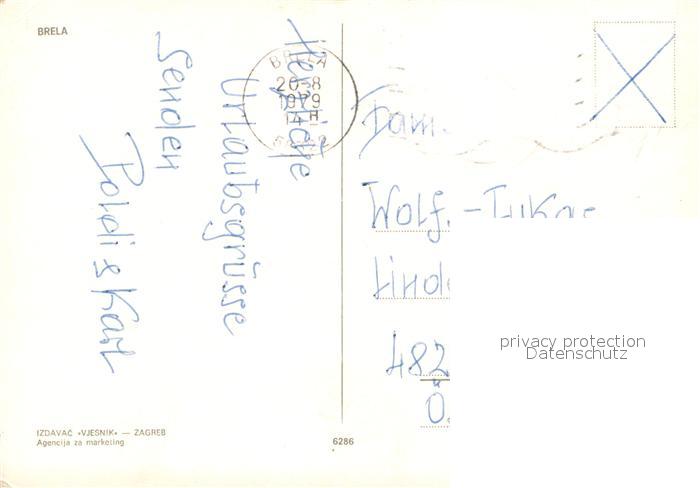 BRELA
Herzliche
Urlaubsgrüsse
senden
Poldi & Karl
BRELA
20-8
1979
14 H
Fam.
Wolf. -
Lind
482
Ö.
privacy protection
Datenschutz
IZDAVAČ «VJESNIK» — ZAGREB
Agencija za marketing
6286